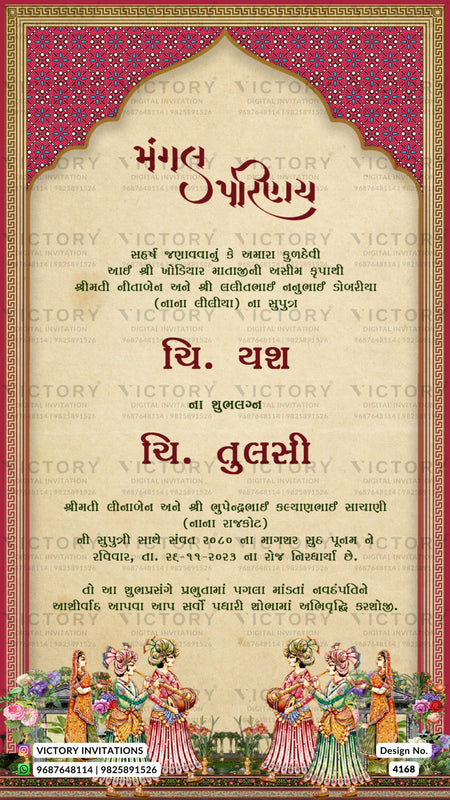 મંગલ
પરિણય
સહર્ષ જણાવવાનું કે અમારા કુળદેવી
આઈ શ્રી ખોડિયાર માતાજીની અસીમ કૃપાથી
શ્રીમતી નીતાબેન અને શ્રી લલીતભાઈ નનુભાઈ ડોબરીયા
(નાના લીલીયા) ના સુપુત્ર
ચિ. યશ
ના શુભલગ્ન
ચિ. તુલસી
શ્રીમતી લીનાબેન અને શ્રી ભુપેન્દ્રભાઈ કલ્યાણભાઈ સાચાણી
(નાના રાજકોટ)
ની સુપુત્રી સાથે સંવત ૨૦૮૦ ના માગશર સુદ પૂનમ ને
રવિવાર, તા. ૨૬-૧૧-૨૦૨૩ ના રોજ નિરધાર્યા છે.
તો આ શુભપ્રસંગે પ્રભુતામાં પગલા માંડતાં નવદંપતિને
આશીર્વાદ આપવા આપ સર્વો પધારી શોભામાં અભિવૃદ્ધિ કરશોજી.
VICTORY INVITATIONS
9687648114 | 9825891526
Design No.
4168
VICTORY
DIGITAL INVITATION
9687648114 | 9825891526